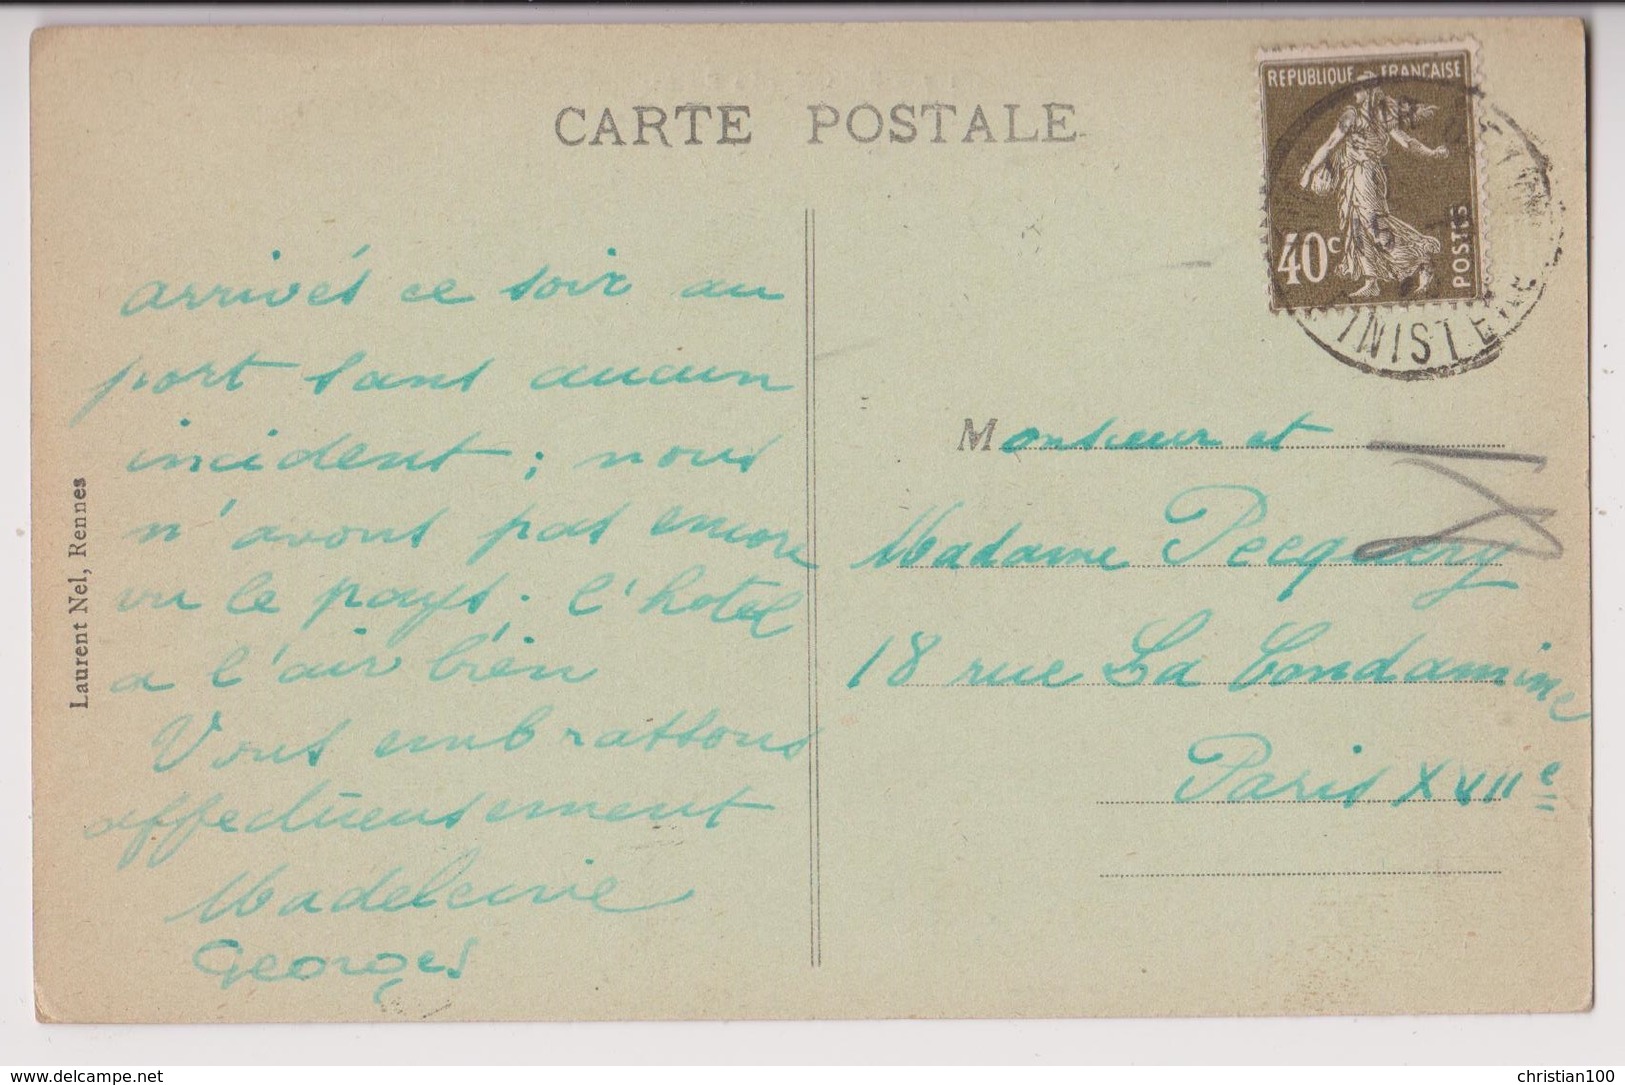 CARTE POSTALE
REPUBLIQUE FRANÇAISE
40c
POSTES
15
FINISTERE
arrivés ce soir au
port sans aucun
incident ; nous
n'avons pas encore
vu le pays. l'hotel
a l'air bien
Vous embrassons
affectueusement
Madeleine
Georges
Laurent Nel, Rennes
Monsieur et
Madame Pecquery
18 rue La Condamine
Paris XVIIe
www.delcampe.net
christian100